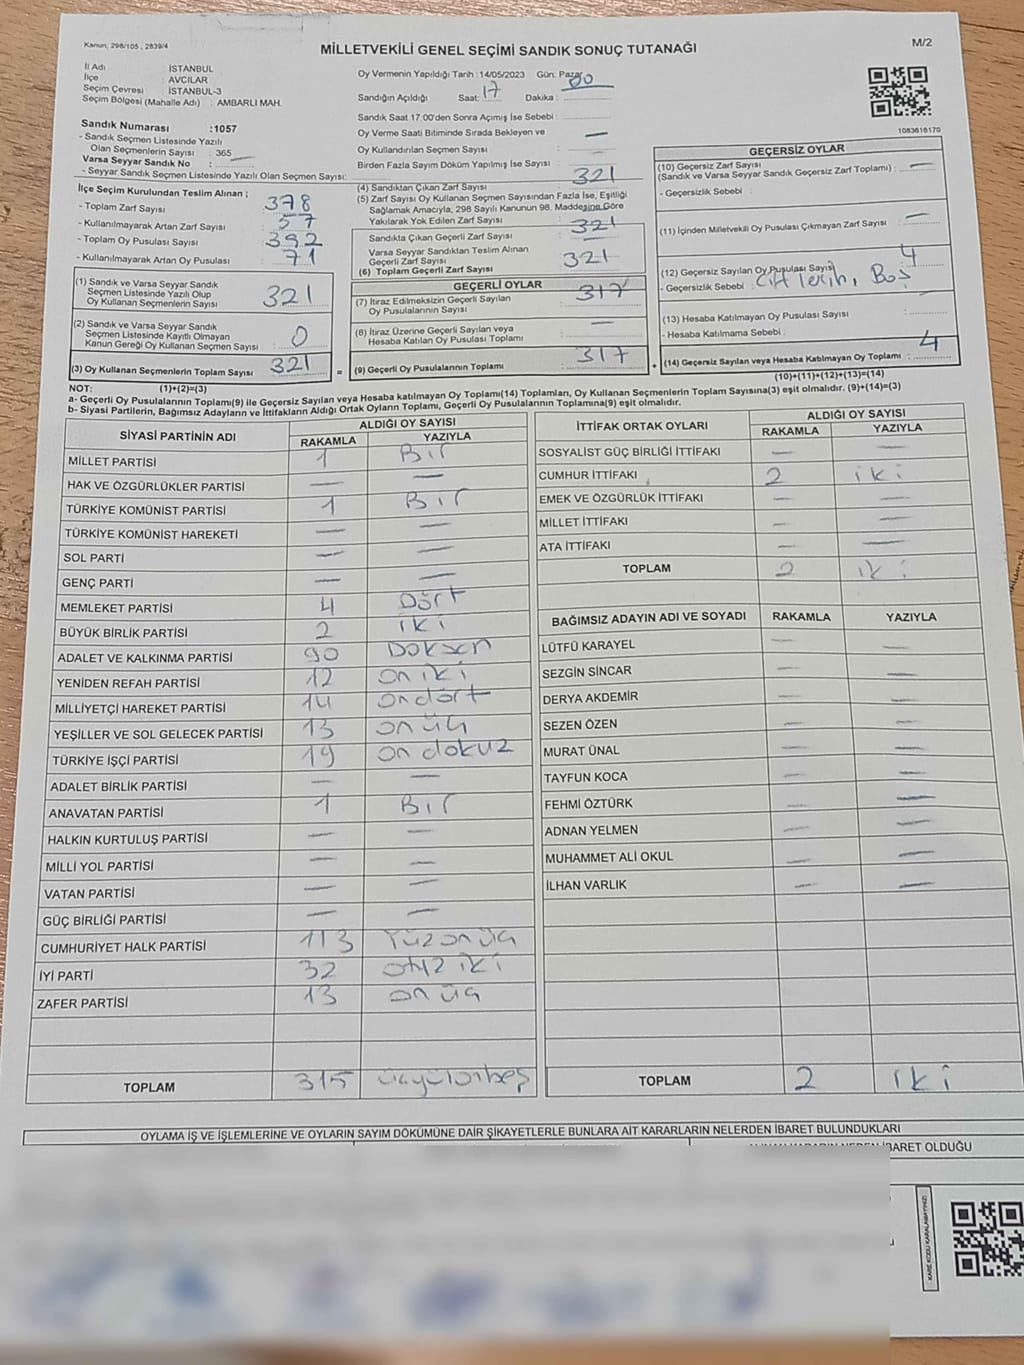 Kanun, 298/105 , 2839/4
MİLLETVEKİLİ GENEL SEÇİMİ SANDIK SONUÇ TUTANAĞI
M/2
İl Adı : İSTANBUL
İlçe : AVCILAR
Seçim Çevresi : İSTANBUL-3
Seçim Bölgesi (Mahalle Adı) : AMBARLI MAH.
Oy Vermenin Yapıldığı Tarih :14/05/2023 Gün: Pazar
Sandığın Açıldığı Saat: 17 Dakika : 00
Sandık Saat 17:00'den Sonra Açımış İse Sebebi :
Oy Verme Saati Bitiminde Sırada Bekleyen ve
Oy Kullandırılan Seçmen Sayısı : —
Birden Fazla Sayım Döküm Yapılmış İse Sayısı :
1083616170
Sandık Numarası :1057
- Sandık Seçmen Listesinde Yazılı
Olan Seçmenlerin Sayısı : 365
Varsa Seyyar Sandık No : —
- Seyyar Sandık Seçmen Listesinde Yazılı Olan Seçmen Sayısı:
İlçe Seçim Kurulundan Teslim Alınan ;
- Toplam Zarf Sayısı : 378
- Kullanılmayarak Artan Zarf Sayısı : 57
- Toplam Oy Pusulası Sayısı : 392
- Kullanılmayarak Artan Oy Pusulası : 71
(1) Sandık ve Varsa Seyyar Sandık
Seçmen Listesinde Yazılı Olup
Oy Kullanan Seçmenlerin Sayısı : 321
(2) Sandık ve Varsa Seyyar Sandık
Seçmen Listesinde Kayıtlı Olmayan
Kanun Gereği Oy Kullanan Seçmen Sayısı : 0
(3) Oy Kullanan Seçmenlerin Toplam Sayısı : 321
=
(4) Sandıktan Çıkan Zarf Sayısı : 321
(5) Zarf Sayısı Oy Kullanan Seçmen Sayısından Fazla İse, Eşitliği
Sağlamak Amacıyla, 298 Sayılı Kanunun 98. Maddesine Göre
Yakılarak Yok Edilen Zarf Sayısı :
Sandıkta Çıkan Geçerli Zarf Sayısı : 321
Varsa Seyyar Sandıktan Teslim Alınan
Geçerli Zarf Sayısı : —
(6) Toplam Geçerli Zarf Sayısı : 321
GEÇERLİ OYLAR
(7) İtiraz Edilmeksizin Geçerli Sayılan
Oy Pusulalarının Sayısı : 317
(8) İtiraz Üzerine Geçerli Sayılan veya
Hesaba Katılan Oy Pusulası Toplamı : —
(9) Geçerli Oy Pusulalarının Toplamı : 317
+
GEÇERSİZ OYLAR
(10) Geçersiz Zarf Sayısı
(Sandık ve Varsa Seyyar Sandık Geçersiz Zarf Toplamı) : —
- Geçersizlik Sebebi :
(11) İçinden Milletvekili Oy Pusulası Çıkmayan Zarf Sayısı : —
(12) Geçersiz Sayılan Oy Pusulası Sayısı : 4
- Geçersizlik Sebebi : Çift Tercih, Boş
(13) Hesaba Katılmayan Oy Pusulası Sayısı :
- Hesaba Katılmama Sebebi :
(14) Geçersiz Sayılan veya Hesaba Katılmayan Oy Toplamı : 4
(10)+(11)+(12)+(13)=(14)
NOT: (1)+(2)=(3)
a- Geçerli Oy Pusulalarının Toplamı(9) ile Geçersiz Sayılan veya Hesaba katılmayan Oy Toplamı(14) Toplamları, Oy Kullanan Seçmenlerin Toplam Sayısına(3) eşit olmalıdır. (9)+(14)=(3)
b- Siyasi Partilerin, Bağımsız Adayların ve İttifakların Aldığı Ortak Oyların Toplamı, Geçerli Oy Pusulalarının Toplamına(9) eşit olmalıdır.
SİYASİ PARTİNİN ADI ALDIĞI OY SAYISI
RAKAMLA YAZIYLA
MİLLET PARTİSİ 1 Bir
HAK VE ÖZGÜRLÜKLER PARTİSİ — —
TÜRKİYE KOMÜNİST PARTİSİ 1 Bir
TÜRKİYE KOMÜNİST HAREKETİ — —
SOL PARTİ — —
GENÇ PARTİ — —
MEMLEKET PARTİSİ 4 Dört
BÜYÜK BİRLİK PARTİSİ 2 iki
ADALET VE KALKINMA PARTİSİ 90 Doksan
YENİDEN REFAH PARTİSİ 12 on iki
MİLLİYETÇİ HAREKET PARTİSİ 14 on dört
YEŞİLLER VE SOL GELECEK PARTİSİ 13 on üç
TÜRKİYE İŞÇİ PARTİSİ 19 on dokuz
ADALET BİRLİK PARTİSİ — —
ANAVATAN PARTİSİ 1 Bir
HALKIN KURTULUŞ PARTİSİ — —
MİLLİ YOL PARTİSİ — —
VATAN PARTİSİ — —
GÜÇ BİRLİĞİ PARTİSİ — —
CUMHURİYET HALK PARTİSİ 113 Yüz on üç
İYİ PARTİ 32 otuz iki
ZAFER PARTİSİ 13 on üç
TOPLAM 315 üçyüzonbeş
İTTİFAK ORTAK OYLARI ALDIĞI OY SAYISI
RAKAMLA YAZIYLA
SOSYALİST GÜÇ BİRLİĞİ İTTİFAKI — —
CUMHUR İTTİFAKI 2 iki
EMEK VE ÖZGÜRLÜK İTTİFAKI — —
MİLLET İTTİFAKI — —
ATA İTTİFAKI — —
TOPLAM 2 iki
BAĞIMSIZ ADAYIN ADI VE SOYADI RAKAMLA YAZIYLA
LÜTFÜ KARAYEL — —
SEZGİN SİNCAR — —
DERYA AKDEMİR — —
SEZEN ÖZEN — —
MURAT ÜNAL — —
TAYFUN KOCA — —
FEHMİ ÖZTÜRK — —
ADNAN YELMEN — —
MUHAMMET ALİ OKUL — —
İLHAN VARLIK — —
TOPLAM 2 iki
OYLAMA İŞ VE İŞLEMLERİNE VE OYLARIN SAYIM DÖKÜMÜNE DAİR ŞİKAYETLERLE BUNLARA AİT KARARLARIN NELERDEN İBARET BULUNDUKLARI
İBARET OLDUĞU
KARE KODU KARALAMAYINIZ!